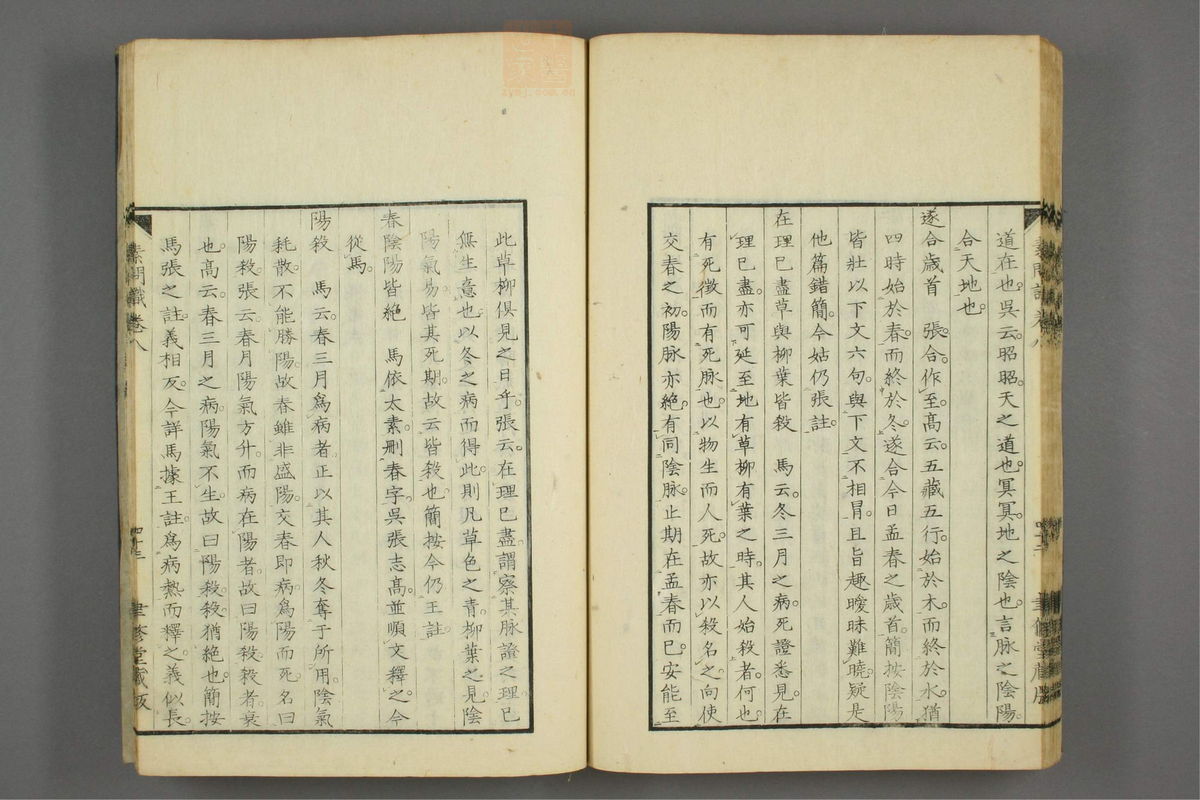 道在也。吳云。昭昭。天之道也。冥冥。地之陰也。言脉之陰陽。
合天地也。
遂合歲首 張。合作至。高云。五藏五行。始於木。而終於水。猶
四時始於春。而終於冬。遂合今日孟春之歲首。簡按陰陽
皆壯以下文六句。與下文不相冒。且旨趣曖昧難曉。疑是
他篇錯簡。今姑仍張註。
在理已盡草與柳葉皆殺 馬云。冬三月之病。死證悉見。在
理已盡。亦可延至地有草柳有葉之時。其人始殺者。何也。
有死徵而有死脉也。以物生而人死。故亦以殺名之。向使
交春之初。陽脉亦絕。有同陰脉。止期在孟春而已。安能至
此草柳俱見之日乎。張云。在理已盡。謂察其脉證之理。已
無生意也。以冬之病而得此。則凡草色之青。柳葉之見。陰
陽氣易。皆其死期。故云皆殺也。簡按今仍王註。
春陰陽皆絕 馬依太素。刪春字。吳張志高。並順文釋之。今
從馬。
陽殺 馬云。春三月爲病者。正以其人秋冬奪于所用。陰氣
耗散。不能勝陽。故春雖非盛陽。交春即病。爲陽而死。名曰
陽殺。張云。春月陽氣方升。而病在陽者。故曰陽殺。殺者。衰
也。高云。春三月之病。陽氣不生。故曰陽殺。殺。猶絕也。簡按
馬張之註。義相反。今詳馬據王註。爲病熱而釋之。義似長。
素問識 卷八
四十三
聿修堂藏版